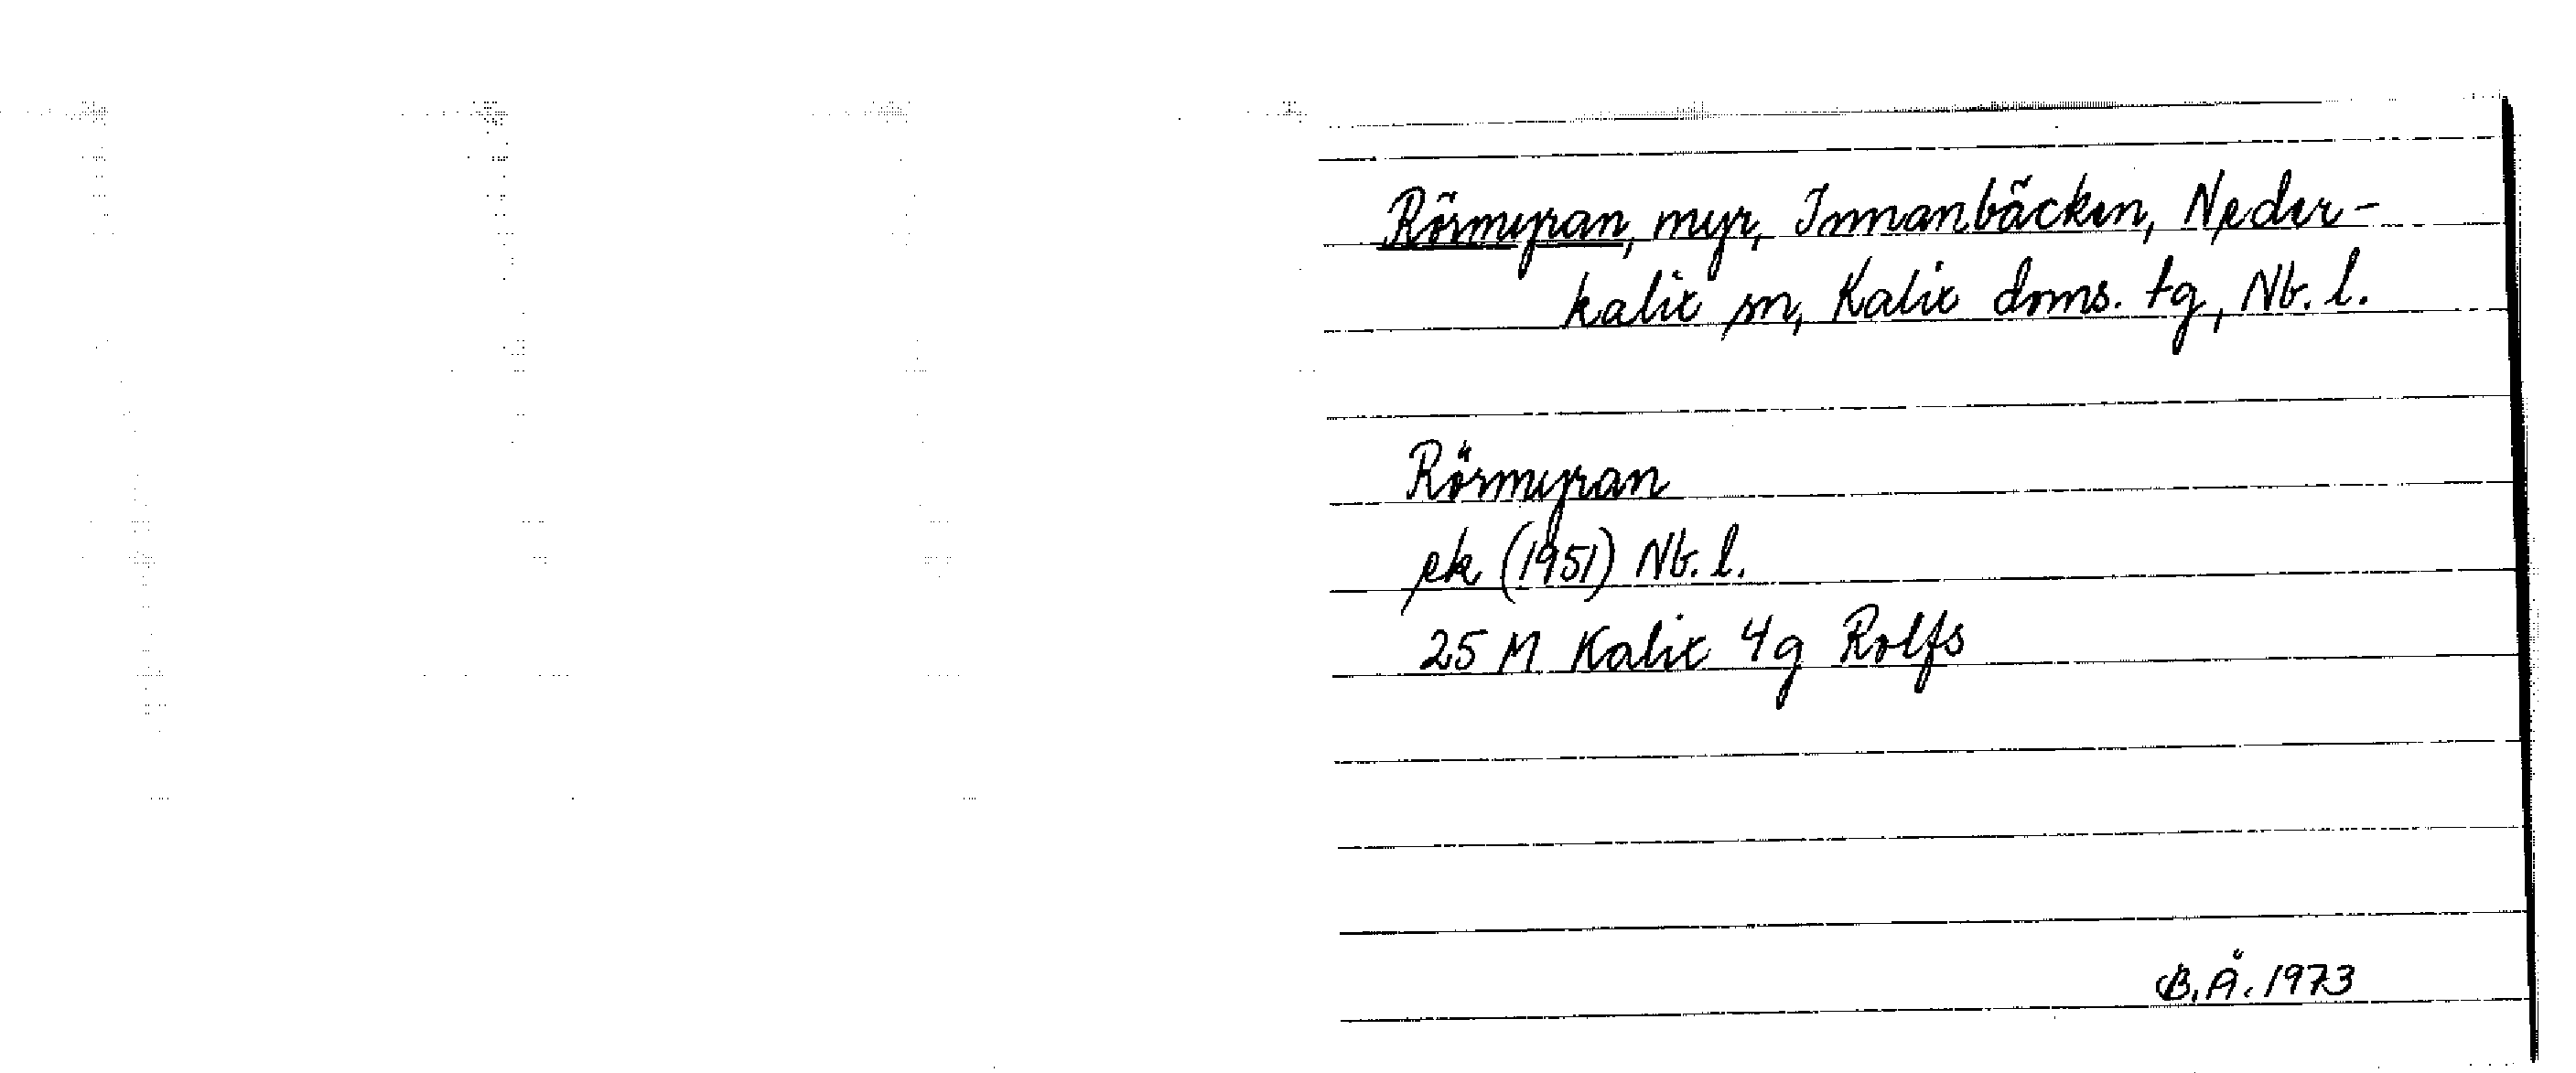 Rörmyran, myr, Innanbäcken, Neder-
kalix sn, Kalix doms. tg, Nb. l.
Rörmyran
ek (1951) Nb. l.
25 M Kalix 4g Rolfs
B.Å. 1973